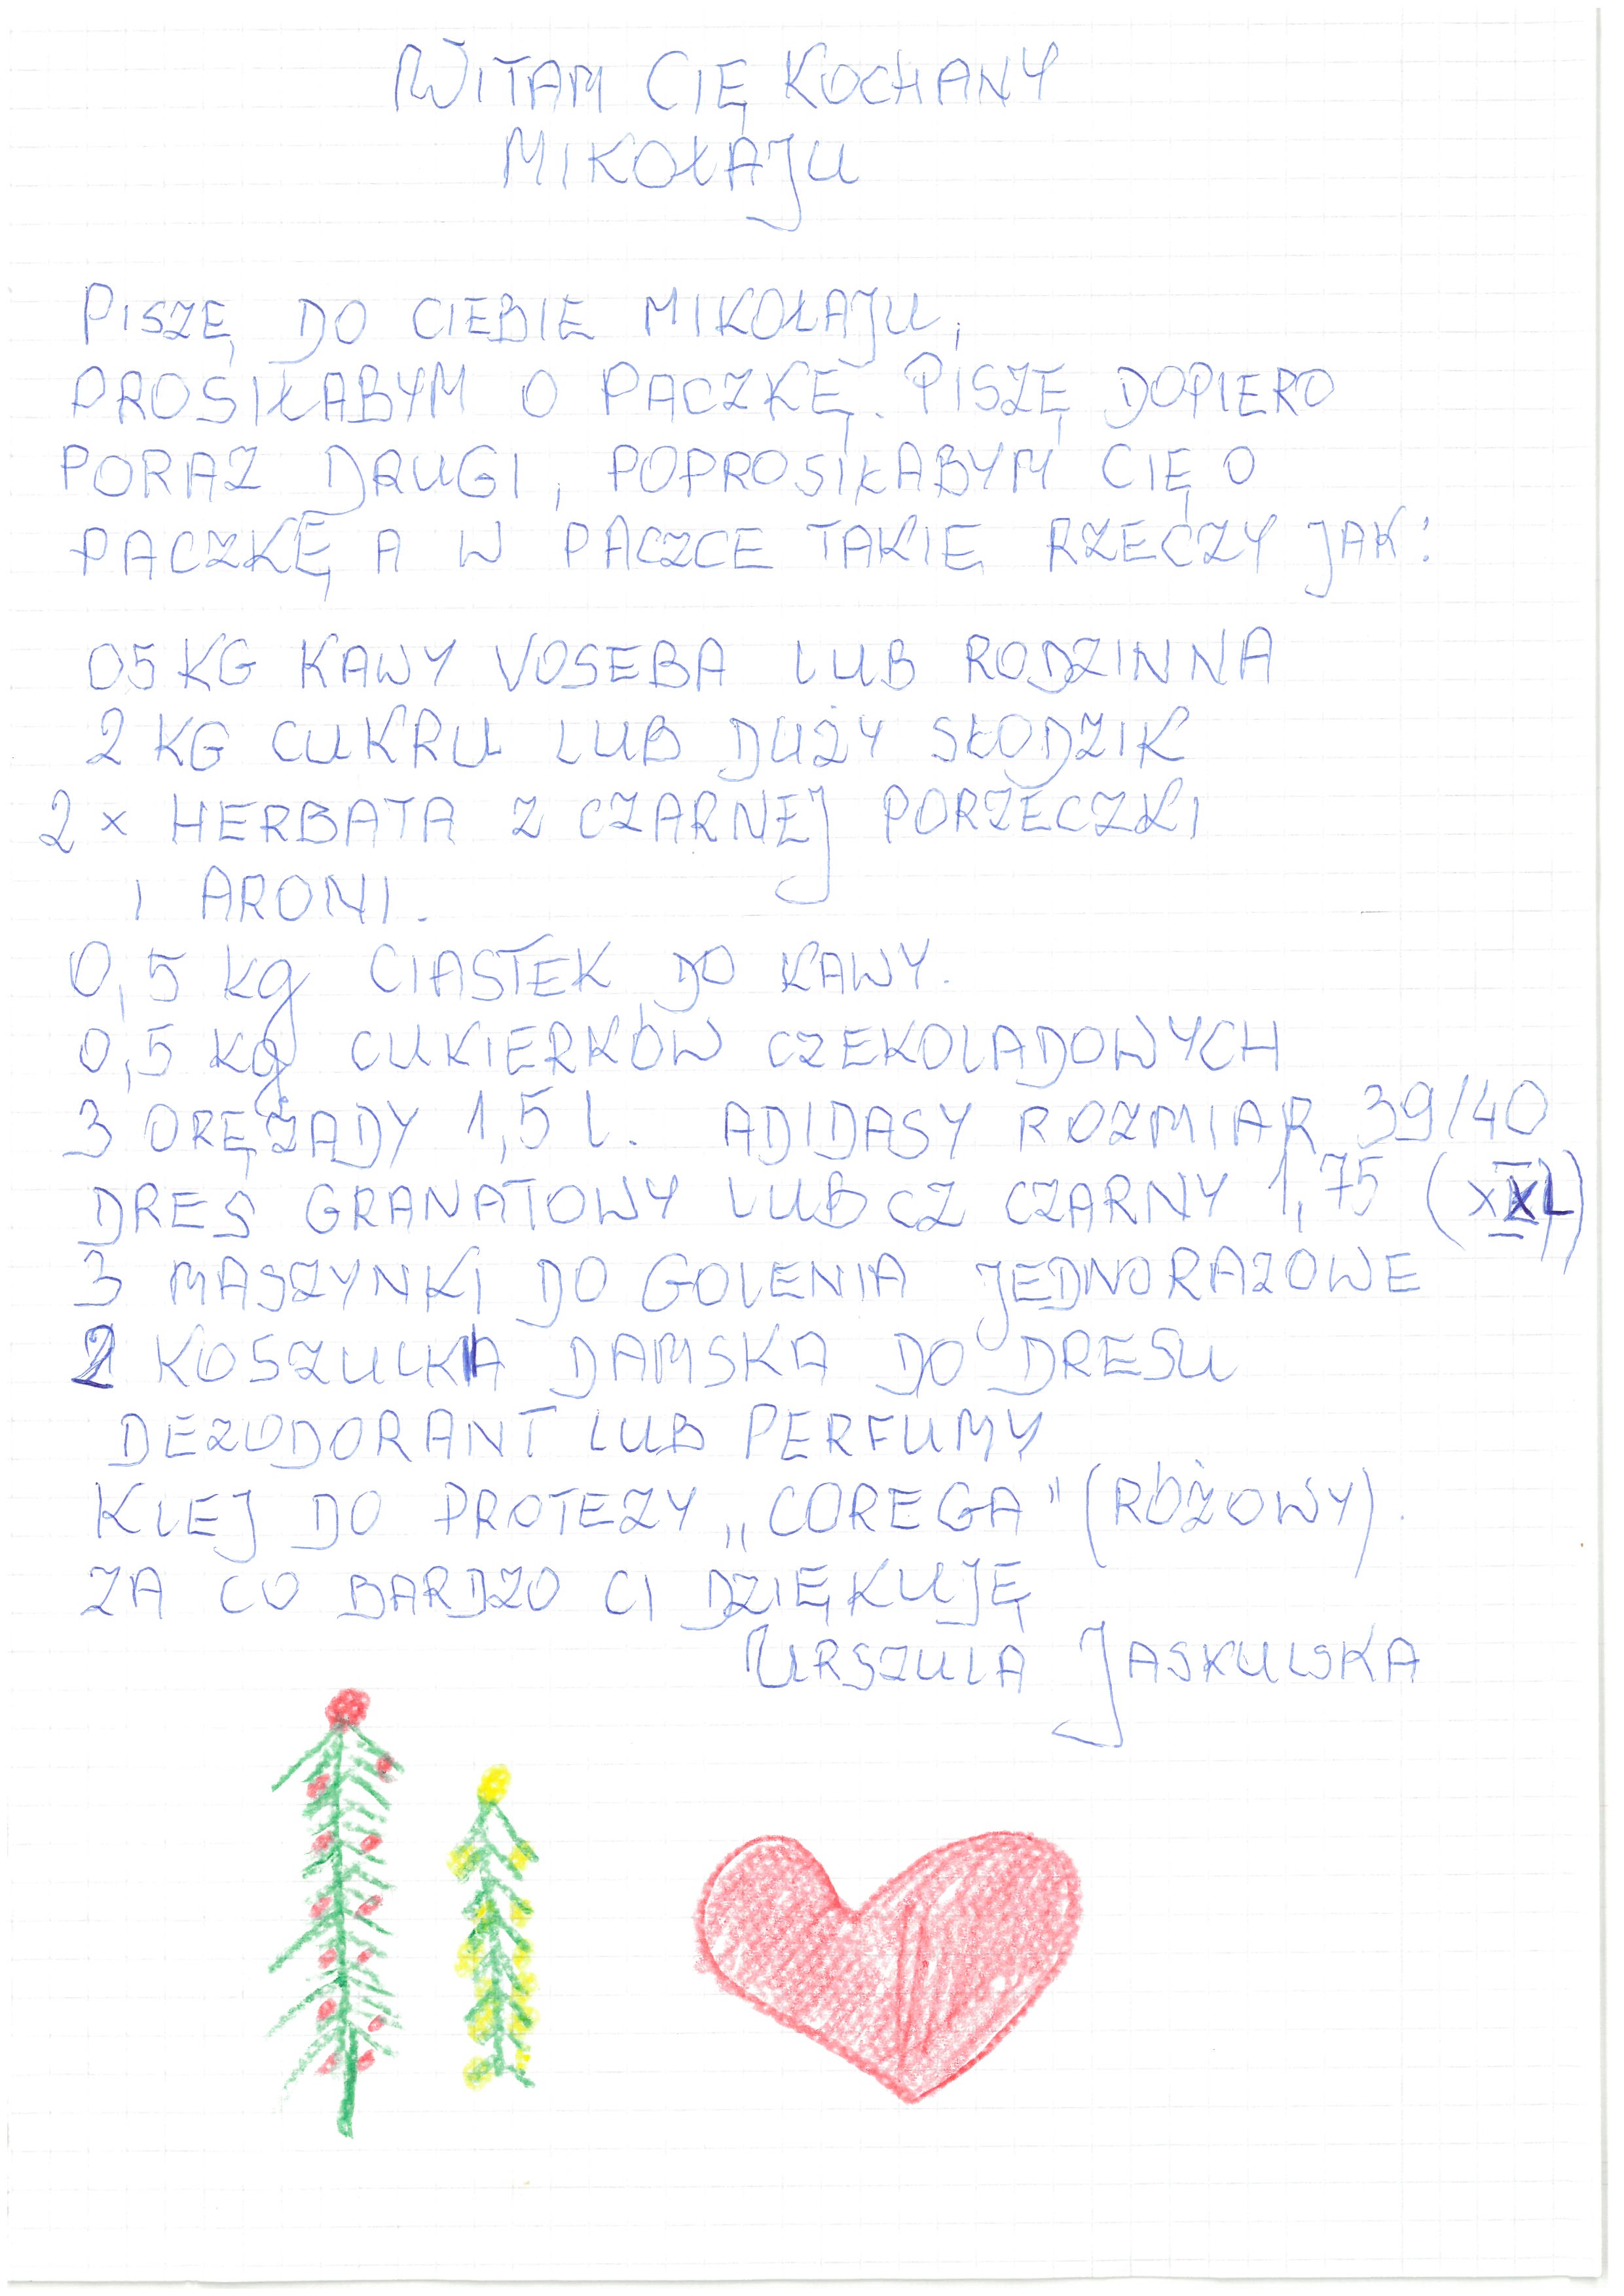 WITAM CIĘ KOCHANY
MIKOŁAJU
PISZĘ DO CIEBIE MIKOŁAJU,
PROSIŁABYM O PACZKĘ. PISZĘ DOPIERO
PORAZ DRUGI, POPROSIŁABYM CIĘ O
PACZKĘ A W PACZCE TAKIE RZECZY JAK:
05 KG KAWY VOSEBA LUB RODZINNA
2 KG CUKRU LUB DUŻY SŁODZIK
2 x HERBATA Z CZARNEJ PORZECZKI
I ARONI.
0,5 kg CIASTEK DO KAWY.
0,5 kg CUKIERKÓW CZEKOLADOWYCH
3 ORĘŻADY 1,5 l. ADIDASY ROZMIAR 39/40
DRES GRANATOWY LUB CZ CZARNY 1,75 (XXL)
3 MASZYNKI DO GOLENIA JEDNORAZOWE
2 KOSZULKA DAMSKA DO DRESU
DEZODORANT LUB PERFUMY
KLEJ DO PROTEZY „COREGA" (RÓŻOWY).
ZA CO BARDZO CI DZIĘKUJĘ
URSZULA JASKULSKA